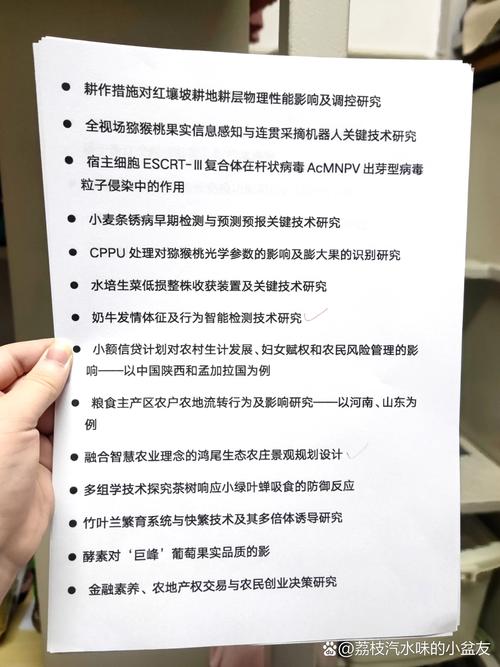 ● 耕作措施对红壤坡耕地耕层物理性能影响及调控研究
● 全视场猕猴桃果实信息感知与连贯采摘机器人关键技术研究
● 宿主细胞ESCRT-Ⅲ复合体在杆状病毒AcMNPV出芽型病毒
粒子侵染中的作用
● 小麦条锈病早期检测与预测预报关键技术研究
● CPPU处理对猕猴桃光学参数的影响及膨大果的识别研究
● 水培生菜低损整株收获装置及关键技术研究
● 奶牛发情体征及行为智能检测技术研究
● 小额信贷计划对农村生计发展、妇女赋权和农民风险管理的影
响——以中国陕西和孟加拉国为例
● 粮食主产区农户农地流转行为及影响研究——以河南、山东为
例
● 融合智慧农业理念的鸿尾生态农庄景观规划设计
● 多组学技术探究茶树响应小绿叶蝉吸食的防御反应
● 竹叶兰繁育系统与快繁技术及其多倍体诱导研究
● 酵素对‘巨峰’葡萄果实品质的影
● 金融素养、农地产权交易与农民创业决策研究
@荔枝汽水味的小盆友